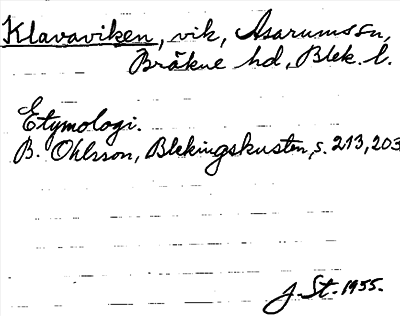 Klavaviken, vik, Asarums sn,
Bräkne hd, Blek. l.
Etymologi.
B. Ohlsson, Blekingskusten, s. 213, 203
J. St. 1955.